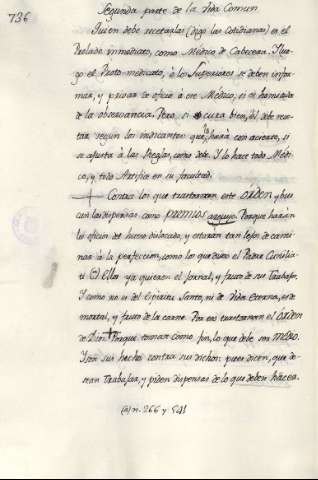 736
Segunda parte de la Vida Comun
Quien debe recetarlas (digo las Cotidianas) es el
Prelado immediato, como Médico de Cabecera. Y lue-
go el Proto-medicato, ò los Superiores se deben infor-
mar, y privar de oficio à ese Médico, si es homicida
de la observancia. Pero, si cura bien, él debe rece-
tar según los indicantes que hará con acierto, si
se ajusta à las Reglas, como debe. Y lo hace todo Médi-
co, y todo Artifice en su facultad.
Contra los que trastornan este orden y bus-
can las dispensas como premios arguyo. Porque harán
el oficio del hueso dislocado, y estarán tan lejos de cami-
nar à la perfección, como los que
Ellos ya quieren el jornal, y fruto de sus Trabajos.
Y como no es del Espiritu Santo, ni de Vida Eterna, es de
mortal, y fruto de la carne. Por eso trastornan el órden
de Dios. Porque toman como fin, lo que debe ser medio.
Y son sus hechos contra sus dichos: pues dicen, que de-
sean Trabajar, y piden dispensas de lo que deben hacer.
(a) n. 266 y 541